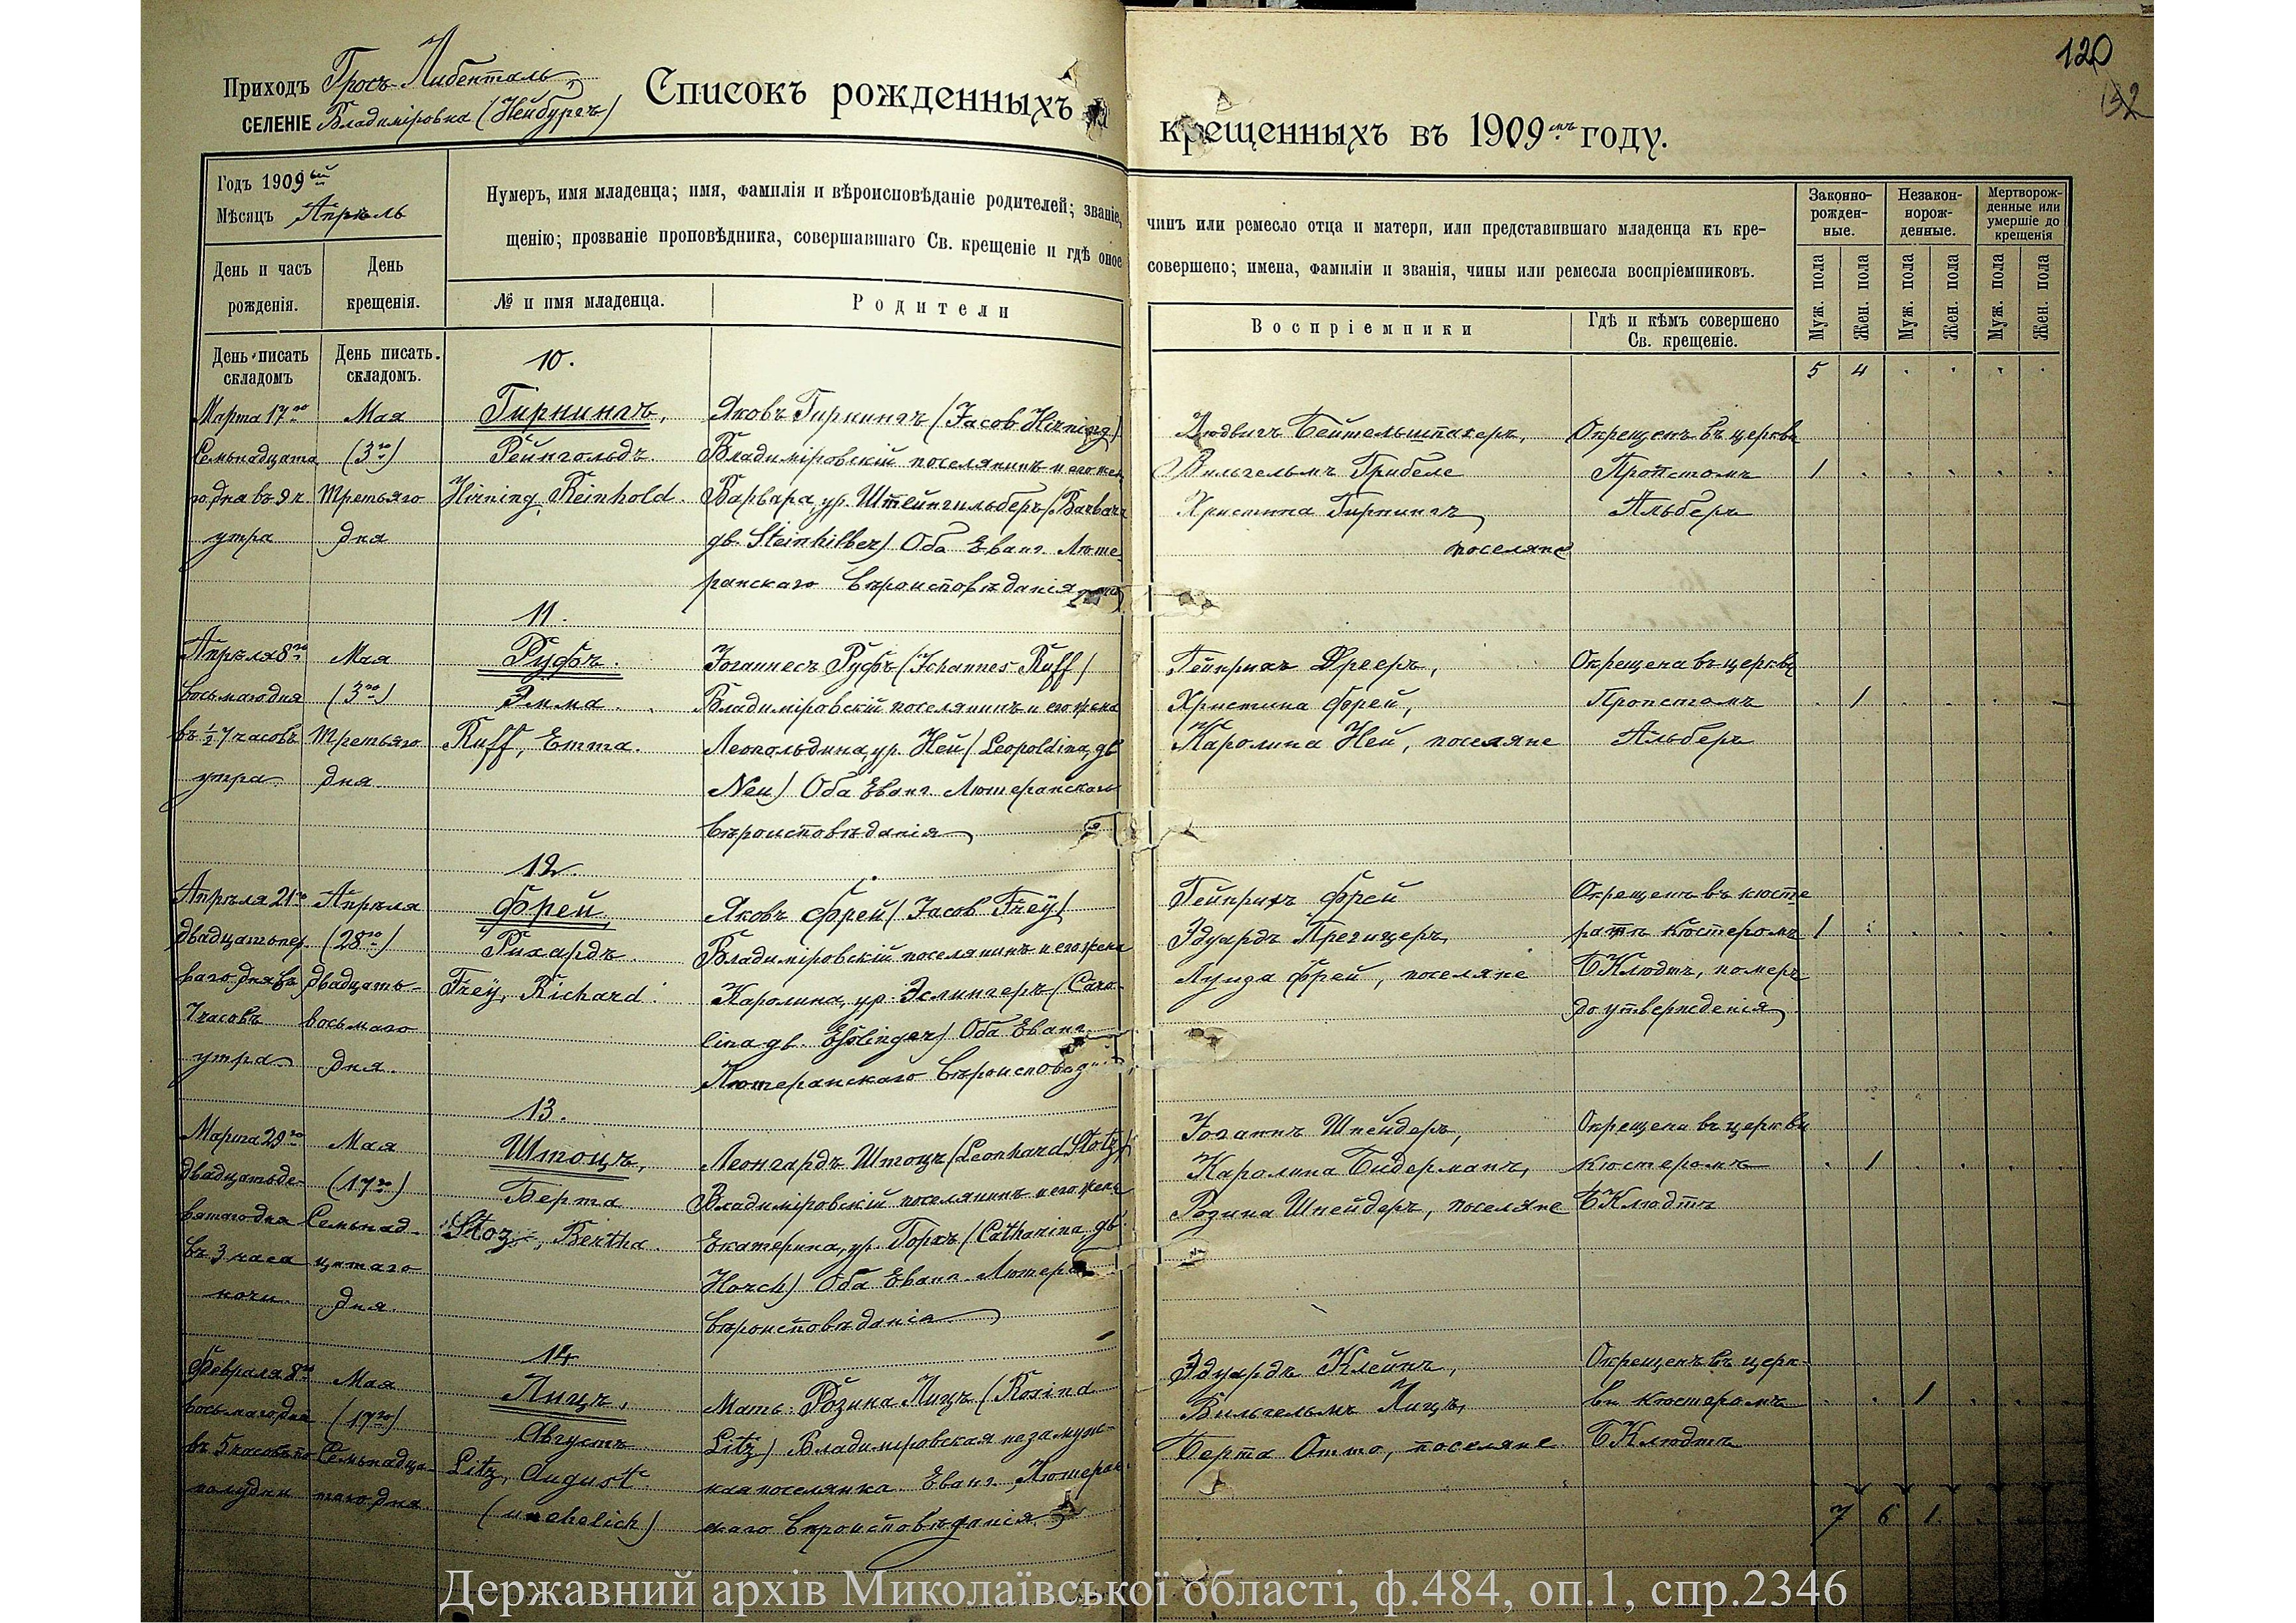 120
132
Приходъ Гросъ-Либенталь,
СЕЛЕНІЕ Владиміровка (Нейбургъ)
Списокъ рожденныхъ и
крещенныхъ въ 1909мъ году.
Годъ 1909ый
Мѣсяцъ Апрѣль
Нумеръ, имя младенца; имя, фамилія и вѣроисповѣданіе родителей; званіе,
щенію; прозваніе проповѣдника, совершавшаго Св. крещеніе и гдѣ оное
чинъ или ремесло отца и матери, или представившаго младенца къ кре-
совершено; имена, фамиліи и званія, чины или ремесла воспріемниковъ.
Законно-
рожден-
ные.
Незакон-
норож-
денные.
Мертворож-
денные или
умершіе до
крещенія
День и часъ
рожденія.
День
крещенія.
№ и имя младенца.
Родители
Воспріемники
Гдѣ и кѣмъ совершено
Св. крещеніе.
Муж. пола
Жен. пола
Муж. пола
Жен. пола
Муж. пола
Жен. пола
День писать
складомъ
День писать.
складомъ.
5 4 . . . .
10.
Марта 17го
Семьнадцата
го дня въ 9 ч.
утра
Мая
(3го)
Третьяго
дня
Гирнингъ,
Рейнгольдъ.
Hirning, Reinhold.
Яковъ Гирнингъ (Jacob Hirning)
Владиміровскій поселянинъ и его жен
Варвара, ур. Штейнгильберъ (Barbara
gb. Steinhilber) Оба Еванг. Люте
ранскаго вѣроисповѣданія
Людвигъ Бейтельшпахеръ,
Вильгельмъ Грибеле
Христина Гирнингъ
поселяне
Окрещенъ въ церкви
Пропстомъ
Альберъ
1 . . . . .
11.
Апрѣля 8го
восьмаго дня
въ ½ 7 часовъ
утра
Мая
(3го)
Третьяго
дня.
Руфъ.
Эмма.
Ruff, Emma.
Іоганнесъ Руфъ (Johannes Ruff)
Владиміровскій поселянинъ и его жена
Леопольдина, ур. Ней (Leopoldina, gb
Neu) Оба Еванг. Лютеранскаго
вѣроисповѣданія
Гейнрихъ Дрееръ,
Христина Фрей,
Каролина Ней, поселяне
Окрещена въ церкви
Пропстомъ
Альберъ
. 1 . . . .
12.
Апрѣля 21го
двадцатьпер
ваго дня въ
7 часовъ
утра
Апрѣля
(28го)
двадцать-
восьмаго
дня.
Фрей,
Рихардъ.
Frey, Richard.
Яковъ Фрей (Jacob Frey)
Владиміровскій поселянинъ и его жена
Каролина, ур. Эслингеръ (Caro-
lina gb. Eßlinger) Оба Еванг.
Лютеранскаго вѣроисповѣд
Гейнрихъ Фрей
Эдуардъ Прегицеръ,
Луиза Фрей, поселяне
Окрещенъ въ кюсте
ратѣ Кюстеромъ
Б Клюдтъ, померъ
до утвержденія
1 . . . . .
13.
Марта 29го
двадцатьде-
вятаго дня
въ 3 часа
ночи.
Мая
(17го)
Семьнад-
цатаго
дня.
Штоцъ,
Берта
Stoz, Bertha.
Леонгардъ Штоцъ (Leonhard Stotz)
Владиміровскій поселянинъ и его жена
Екатерина, ур. Горхъ (Catharina, gb.
Horch) Оба Еванг. Лютер
вѣроисповѣданія
Іоганнъ Шнейдеръ,
Каролина Бидерманъ,
Розина Шнейдеръ, поселяне
Окрещена въ церкви
Кюстеромъ
Б Клюдтъ
. 1 . . . .
14
Февраля 8го
восьмаго дня
въ 5 часовъ по
полудни
Мая
(17го)
Семьнадца-
таго дня.
Лицъ,
Августъ.
Litz, August.
(unehelich)
Мать: Розина Лицъ (Rosina
Litz) Владиміровская незамуж-
няя поселянка Еванг. Лютеран
скаго вѣроисповѣданія.
Эдуардъ Клейнъ,
Вильгельмъ Лицъ,
Берта Отто, поселяне
Окрещенъ въ церк-
ви Кюстеромъ
Б Клюдтъ
. . 1 . . .
7 6 1 . . .
Державний архів Миколаївської області, ф.484, оп.1, спр.2346